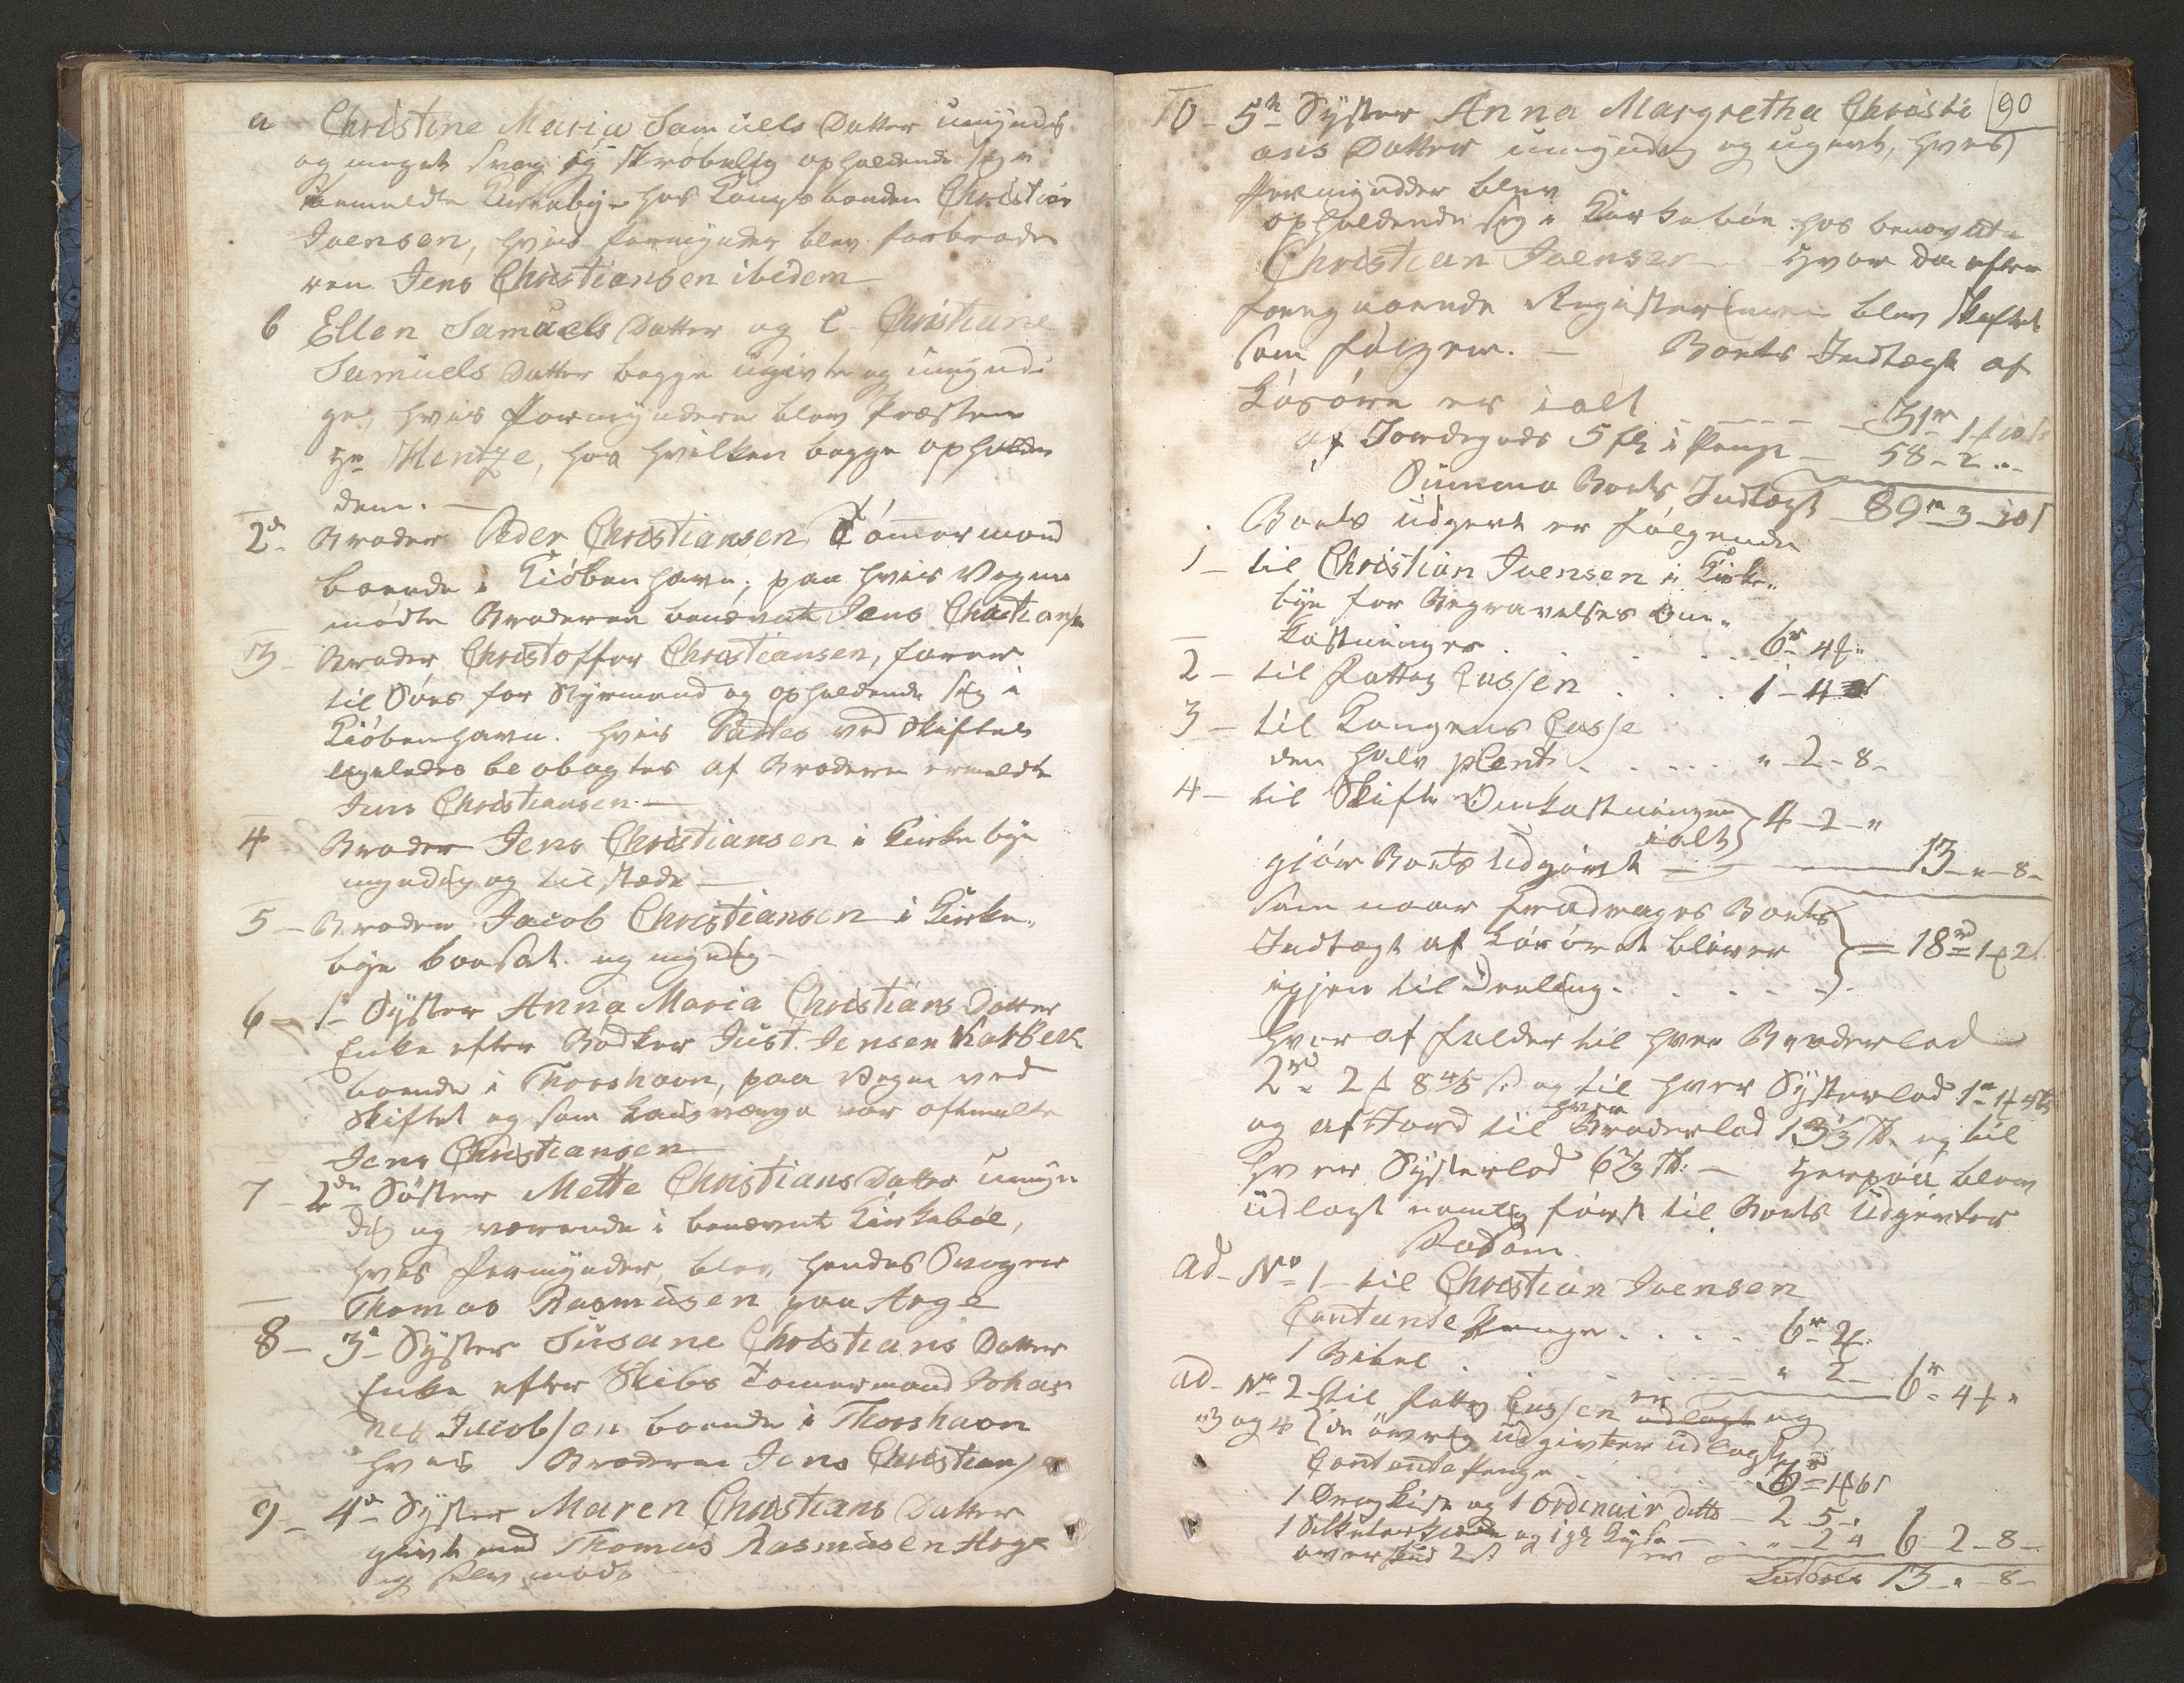 a Christine Maria Samuels Datter umyndig
og meget svag og skrøbelig opholdende sig i
bemeldte Kirkebye hos Kongsbonden Christian
Joensen, hvis formynder blev farbrode
ren Jens Christiansen ibidem
b Ellen Samuels Datter og C Christiane
Samuels Datter begge ugivte og umyndi
ge, hvis Formyndere blev Præsten
Hr Hentze, hos hvilken begge opholde
dem.
2de Broder Peder Christiansen Tømmermand
boende i Kiöbenhavn, paa hvis Vegne
mödte Broderen benævnte Jens Christians.
3 Broder Christoffer Christiansen, farer
til Söes for Styrmand og opholdende sig i
Kiöbenhavn. hvis ved Skiftet
ligeledes be obagtes af Broderen ermeldte
Jens Christiansen.
4 Broder Jens Christiansen i Kirkebye
myndig og tilstæde
5 Broder Jacob Christiansen i Kirke„
bye boesat og myndig
6 1te Syster Anna Maria Christians Datter
Enke efter Bödker Just. Jensen
boende i Thorshavn, paa Vegne ved
Skiftet og som Laugværge var oftmelte
Jens Christiansen
7 2den Söster Mette Christians Datter umyn
dig og værende i benævnt Kirkeböe,
hvis Formynder blev hendes Svoger
Thomas Rasmusen paa Arge
8 3die Syster Susane Christians Datter
Enke efter Skibs Tömmermand Johan
nes Jacobsen boende i Thorshavn
hvis Broderen Jens Christians.
9 4de Syster Maren Christians Datter
givt med Thomas Rasmusen Arge
og selv mödt
90
10 5te Syster Anna Margretha Christi
ans Datter umyndig og ugivt, hvis
Formynder blev
opholdende sig i Kirkeböe hos benævnte
Christian Joensen Hvor da efter
foregaaende blev skiftet
som fölger. Boets Indtægt af
Lösöre er ialt 31rd 1 10
af Jordegods 5 i Penge 58 - 2 -
Summa Boets Indtægt 89rd 3 10
Boets Udgivt er fölgende
1 til Christian Joensen i Kirke„
bye for Begravelses Om„
kostninger 6rd 4
2 til Fattig Cassen 1 - 4
3 til Kongens Casse
den halv pCent " 2 - 8
4 til Skifte Omkostninger
ialt 4 - 2 - "
gjör Boets Udgivt 13 - " - 8
Som naar fradrages Boets
Indtægt af Lösöret bliver 18rd 1 2
igjen til Deeling
hvoraf falder til hver Broderlod
2rd 2 8 4/5 og til hver Systerlod 1rd 1
og af Jord til hver Broderlod 13 1/3 og til
hver Systerlod 6 2/3 Herpaa blev
udlagt nemlig först til Boets Udgivter
saasom
ad No 1 til Christian Joensen
Contante Penge 6rd 2
1 Bibel " 2 6rd 4 "
ad No 2 til Fattig Cassen udlagt og
3 og 4 de övrig udgivter udlagt
Contante Penge
1 Dragkiste og 1 ordinair ditto 2 5
2 4 6 2 8
overskud 2
13 " 8